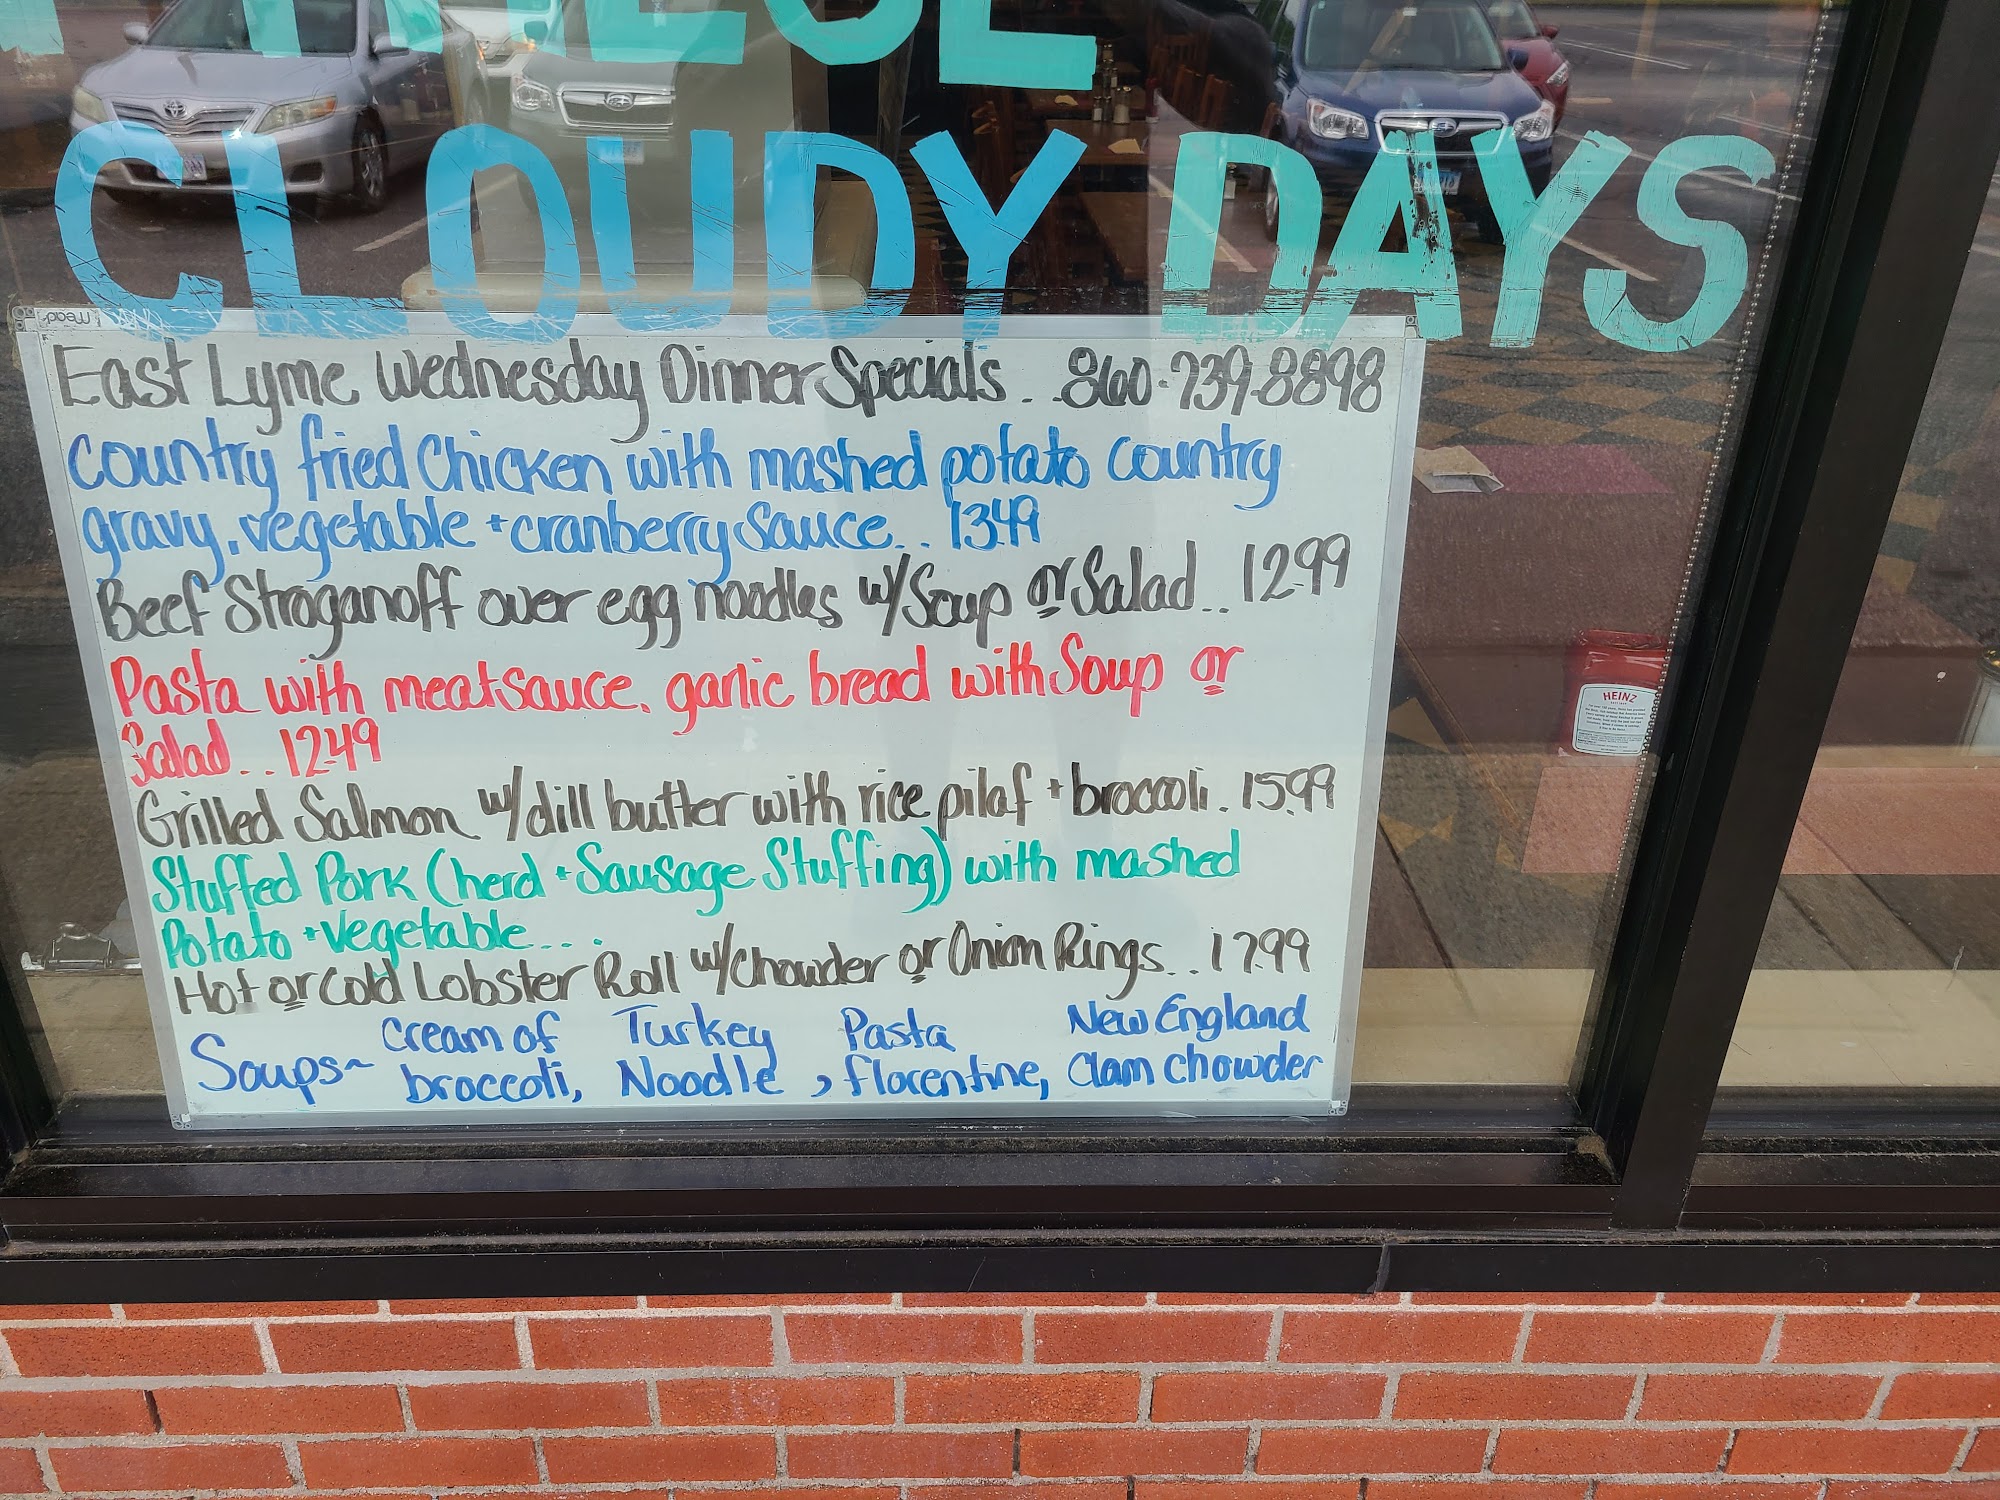 THESE
CLOUDY DAYS
East Lyme Wednesday Dinner Specials . . 860-739-8898
Country fried Chicken with mashed potato country
gravy, vegetable + cranberry Sauce . . 13.49
Beef Stroganoff over egg noodles w/ Soup or Salad . . 12.99
Pasta with meatsauce, garlic bread with Soup or
Salad . . 12.49
Grilled Salmon w/ dill butter with rice pilaf + broccoli . 15.99
Stuffed Pork (herd + Sausage Stuffing) with mashed
Potato + Vegetable . . .
Hot or Cold Lobster Roll w/ Chowder or Onion Rings . . 17.99
Soups~ Cream of broccoli, Turkey Noodle, Pasta florentine, New England Clam Chowder
HEINZ